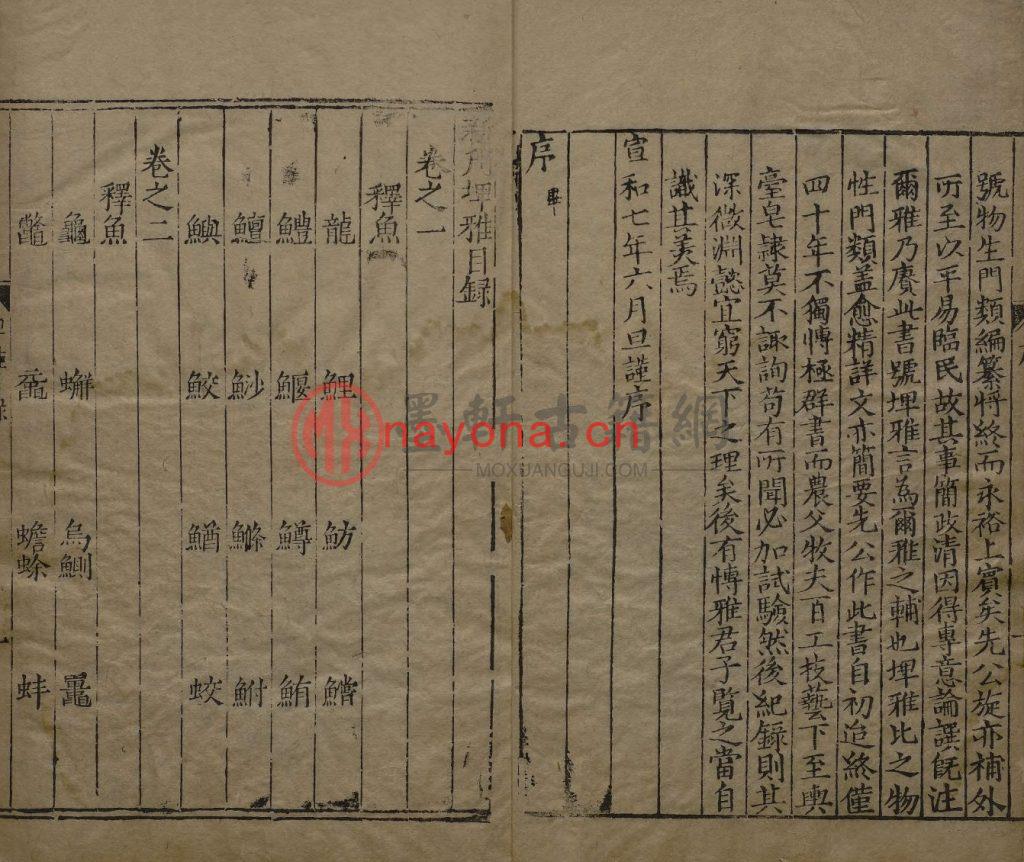 號物生門類編纂將終而永裕上賓矣先公旋亦補外
所至以平易臨民故其事簡政清因得專意論譔既注
爾雅乃賡此書號埤雅言為爾雅之輔也埤雅比之物
性門類盖愈精詳文亦簡要先公作此書自初迨終僅
四十年不獨愽極群書而農父牧夫百工技藝下至輿
臺皂隷莫不諏詢苟有所聞必加試驗然後紀録則其
深微淵懿宜窮天下之理矣後有愽雅君子覽之當自
識其美焉
宣和七年六月旦謹序
序 畢
埤雅目録
卷之一
釋魚
龍 鯉 魴 鱨
鱧 鰋 鱒 鮪
鱣 魦 鰷 鮒
鱮 鮫 鰌 蛟
卷之二
釋魚
龜 蠏 烏鰂 鼉
鼈 黿 蟾蜍 蚌
墨軒古籍網
MOXUANGUJI.COM
nayona.cn